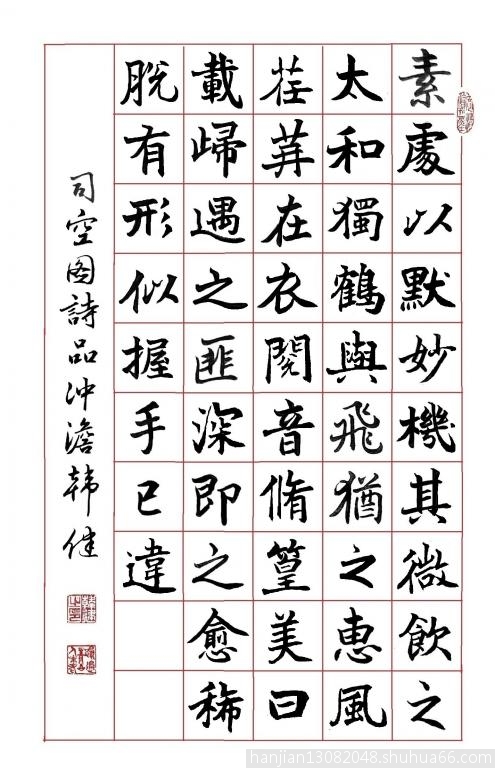 素處以默妙機其微飲之
太和獨鶴與飛猶之恵風
荏苒在衣閱音脩篁美曰
載歸遇之匪深即之愈稀
脫有形似握手已違
司空图詩品冲澹韩健
hanjian13082048.shuhua66.com